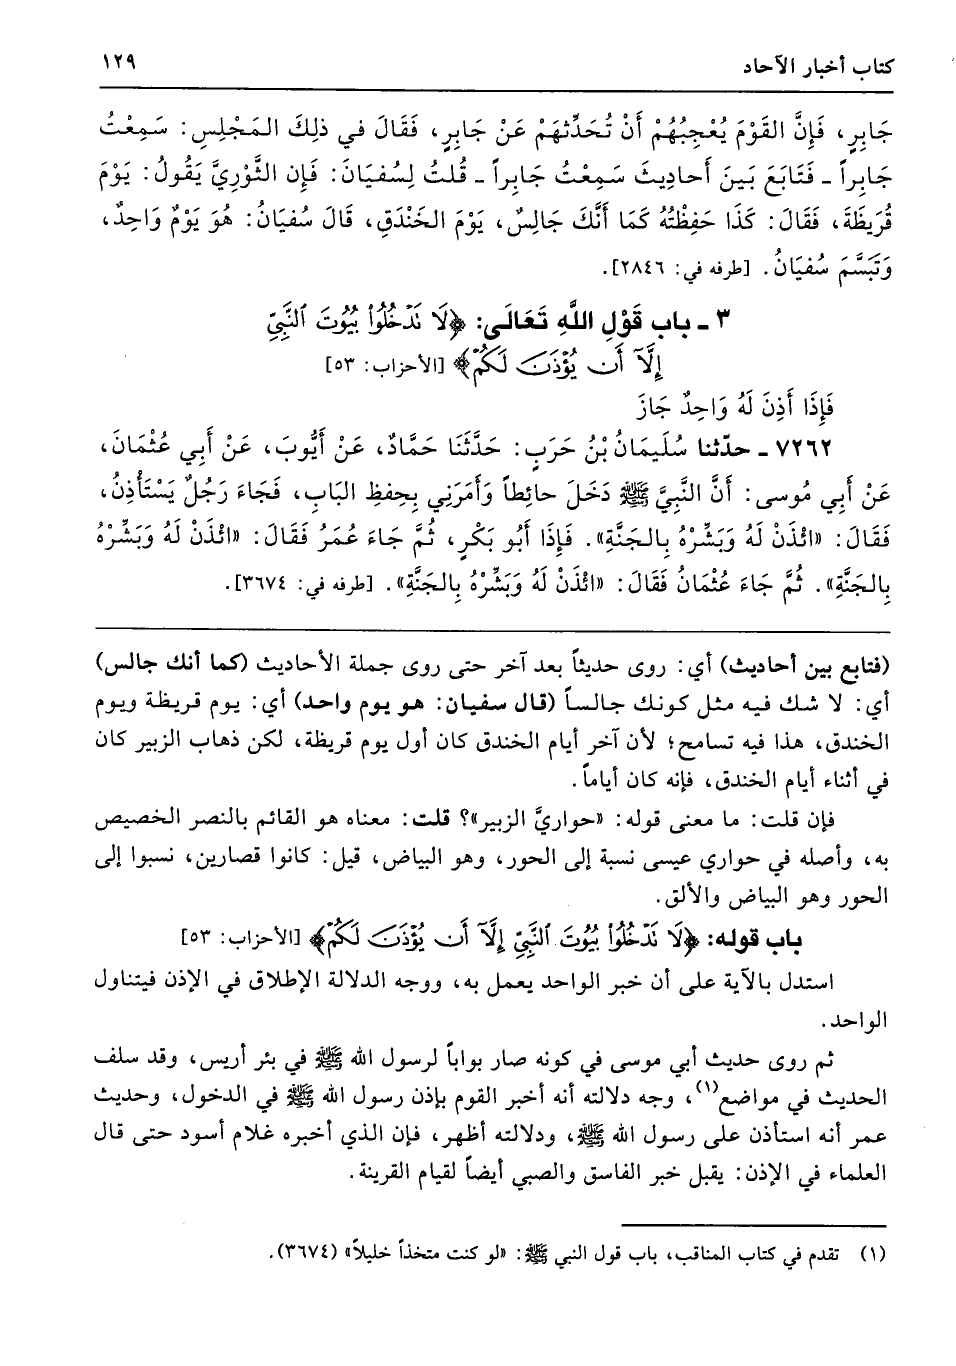 كتاب أخبار الآحاد
١٢٩
جَابِرٍ، فَإِنَّ القَوْمَ يُعْجِبُهُمْ أَنْ تُحَدِّثَهُمْ عَنْ جَابِرٍ، فَقَالَ في ذلِكَ المَجْلِسِ: سَمِعْتُ
جَابِراً ـ فَتَابَعَ بَينَ أَحادِيثَ سَمِعْتُ جَابِراً ـ قُلتُ لِسُفيَانَ: فَإِن الثَّوْرِيَّ يَقُولُ: يَوْمَ
قُرَيظَةَ، فَقَالَ: كَذَا حَفِظْتُهُ كَمَا أَنَّكَ جَالِسٌ، يَوْمَ الخَنْدَقِ، قَالَ سُفيَانُ: هُوَ يَوْمٌ وَاحِدٌ،
وَتَبَسَّمَ سُفيَانُ. [طرفه في: ٢٨٤٦].
٣ ـ باب قَوْلِ اللَّهِ تَعَالَى: ﴿لَا نَدْخُلُواْ بُيُوتَ ٱلنَّبِيِّ
إِلَّآ أَن يُؤْذَنَ لَكُمْ﴾ [الأحزاب: ٥٣]
فَإِذَا أَذِنَ لَهُ وَاحِدٌ جَازَ
٧٢٦٢ ـ حدّثنا سُلَيمَانُ بْنُ حَرَبٍ: حَدَّثَنَا حَمَّادٌ، عَنْ أَيُّوبَ، عَنْ أَبِي عُثْمَانَ،
عَنْ أَبِي مُوسى: أَنَّ النَّبِيَّ ﷺ دَخَلَ حائِطاً وَأَمَرَنِي بِحِفظِ البَابِ، فَجَاءَ رَجُلٌ يَسْتَأْذِنُ،
فَقَالَ: «ائْذَنْ لَهُ وَبَشِّرْهُ بِالجَنَّةِ». فَإِذَا أَبُو بَكْرٍ، ثُمَّ جَاءَ عُمَرُ فَقَالَ: «ائْذَنْ لَهُ وَبَشِّرْهُ
بِالجَنَّةِ». ثُمَّ جَاءَ عُثْمَانُ فَقَالَ: «ائْذَنْ لَهُ وَبَشِّرْهُ بِالجَنَّةِ». [طرفه في: ٣٦٧٤].
(فتابع بين أحاديث) أي: روى حديثاً بعد آخر حتى روى جملة الأحاديث (كما أنك جالس)
أي: لا شك فيه مثل كونك جالساً (قال سفيان: هو يوم واحد) أي: يوم قريظة ويوم
الخندق، هذا فيه تسامح؛ لأن آخر أيام الخندق كان أول يوم قريظة، لكن ذهاب الزبير كان
في أثناء أيام الخندق، فإنه كان أياماً.
فإن قلت: ما معنى قوله: «حواريَّ الزبير»؟ قلت: معناه هو القائم بالنصر الخصيص
به، وأصله في حواري عيسى نسبة إلى الحور، وهو البياض، قيل: كانوا قصارين، نسبوا إلى
الحور وهو البياض والألق.
باب قوله: ﴿لَا نَدْخُلُواْ بُيُوتَ ٱلنَّبِيِّ إِلَّآ أَن يُؤْذَنَ لَكُمْ﴾ [الأحزاب: ٥٣]
استدل بالآية على أن خبر الواحد يعمل به، ووجه الدلالة الإطلاق في الإذن فيتناول
الواحد.
ثم روى حديث أبي موسى في كونه صار بواباً لرسول الله ﷺ في بئر أريس، وقد سلف
الحديث في مواضع(١)، وجه دلالته أنه أخبر القوم بإذن رسول الله ﷺ في الدخول، وحديث
عمر أنه استأذن على رسول الله ﷺ، ودلالته أظهر، فإن الذي أخبره غلام أسود حتى قال
العلماء في الإذن: يقبل خبر الفاسق والصبي أيضاً لقيام القرينة.
(١) تقدم في كتاب المناقب، باب قول النبي ﷺ: «لو كنت متخذاً خليلاً» (٣٦٧٤).